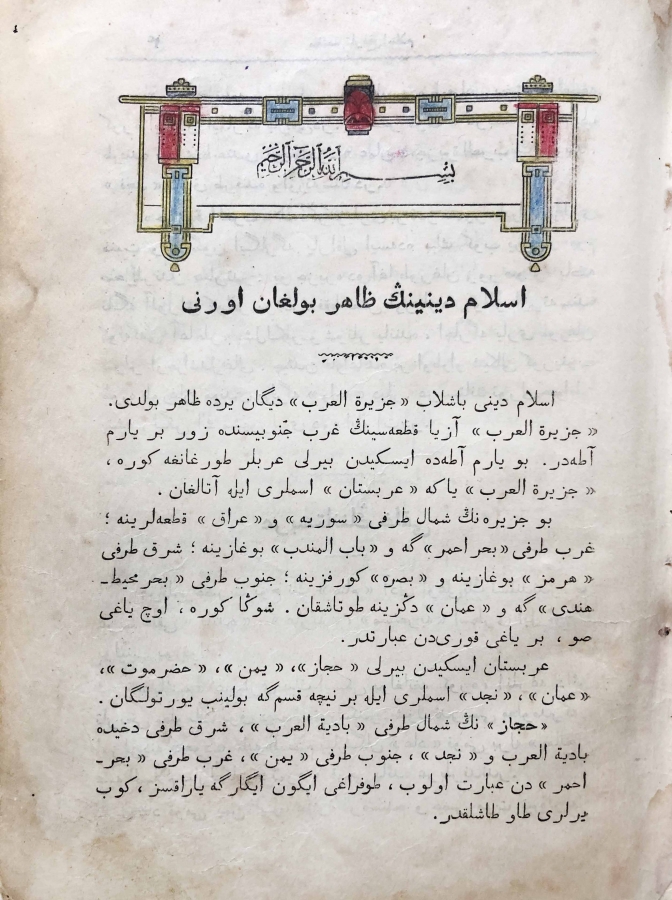 بسم الله الرحمن الرحيم
اسلام دينينڭ ظاهر بولغان اورنى
اسلام دينى باشلاب «جزيرة العرب» ديگان يرده ظاهر بولدى.
«جزيرة العرب» آزيا قطعه‌سينڭ غرب جنوبيسنده زور بر يارم
آطه‌در. بو يارم آطه‌ده ايسكيدن بيرلى عربلر طورغانغه كوره،
«جزيرة العرب» ياكه «عربستان» اسملرى ايله آتالغان.
بو جزيره‌نڭ شمال طرفى «سوريه» و «عراق» قطعه‌لرينه؛
غرب طرفى «بحر احمر» گه و «باب المندب» بوغازينه؛ شرق طرفى
«هرمز» بوغازينه و «بصره» كورفزينه؛ جنوب طرفى «بحر محيط ـ
هندى» گه و «عمان» دڭزينه طوتاشقان. شوڭا كوره، اوچ ياغى
صو، بر ياغى قورى‌دن عبارتدر.
عربستان ايسكيدن بيرلى «حجاز»، «يمن»، «حضرموت»،
«عمان»، «نجد» اسملرى ايله بر نيچه قسم‌گه بولينب يورتولگان.
«حجاز» نڭ شمال طرفى «بادية العرب»، شرق طرفى دخيده
بادية العرب و «نجد»، جنوب طرفى «يمن»، غرب طرفى «بحر ـ
احمر» دن عبارت اولوب، طوفراغى ايگون ايگارگه ياراقسز، كوب
يرلرى طاو طاشلقدر.